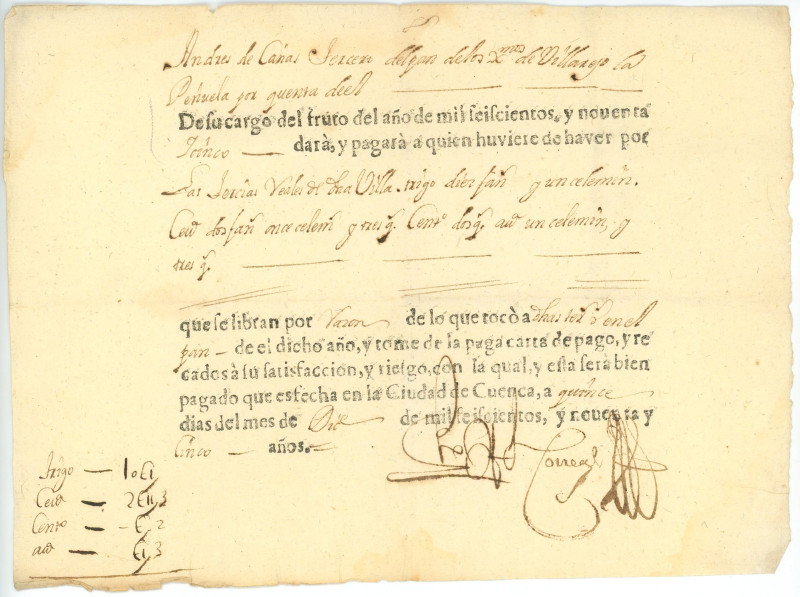 Andres de Cañas Tercero del pan de los Dmos de Villarejo la
Peñuela por quenta de el
De su cargo del fruto del año de mil seiscientos, y nouenta
y cinco darà, y pagarà a quien huviere de haver por
Las Tercias Reales de dha Villa trigo diez fan y un celemin.
Ceuᵃ dos fan once celem y tres q. Centᵒ dos q. auᵃ un celemin, y
tres q.
que se libran por razon de lo que tocò a dhas en el
pan de el dicho año, y tome de la paga carta de pago, y re
cados à su satisfaccion, y riesgo, con la qual, y esta serà bien
pagado que es fecha en la Ciudad de Cuenca, a quince
dias del mes de Dice de mil seiscientos, y nouenta y
Cinco años.
Trigo — 10 1
Ceuᵃ — 2 11, 3
Centᵒ — , 2
auᵃ — 1, 3